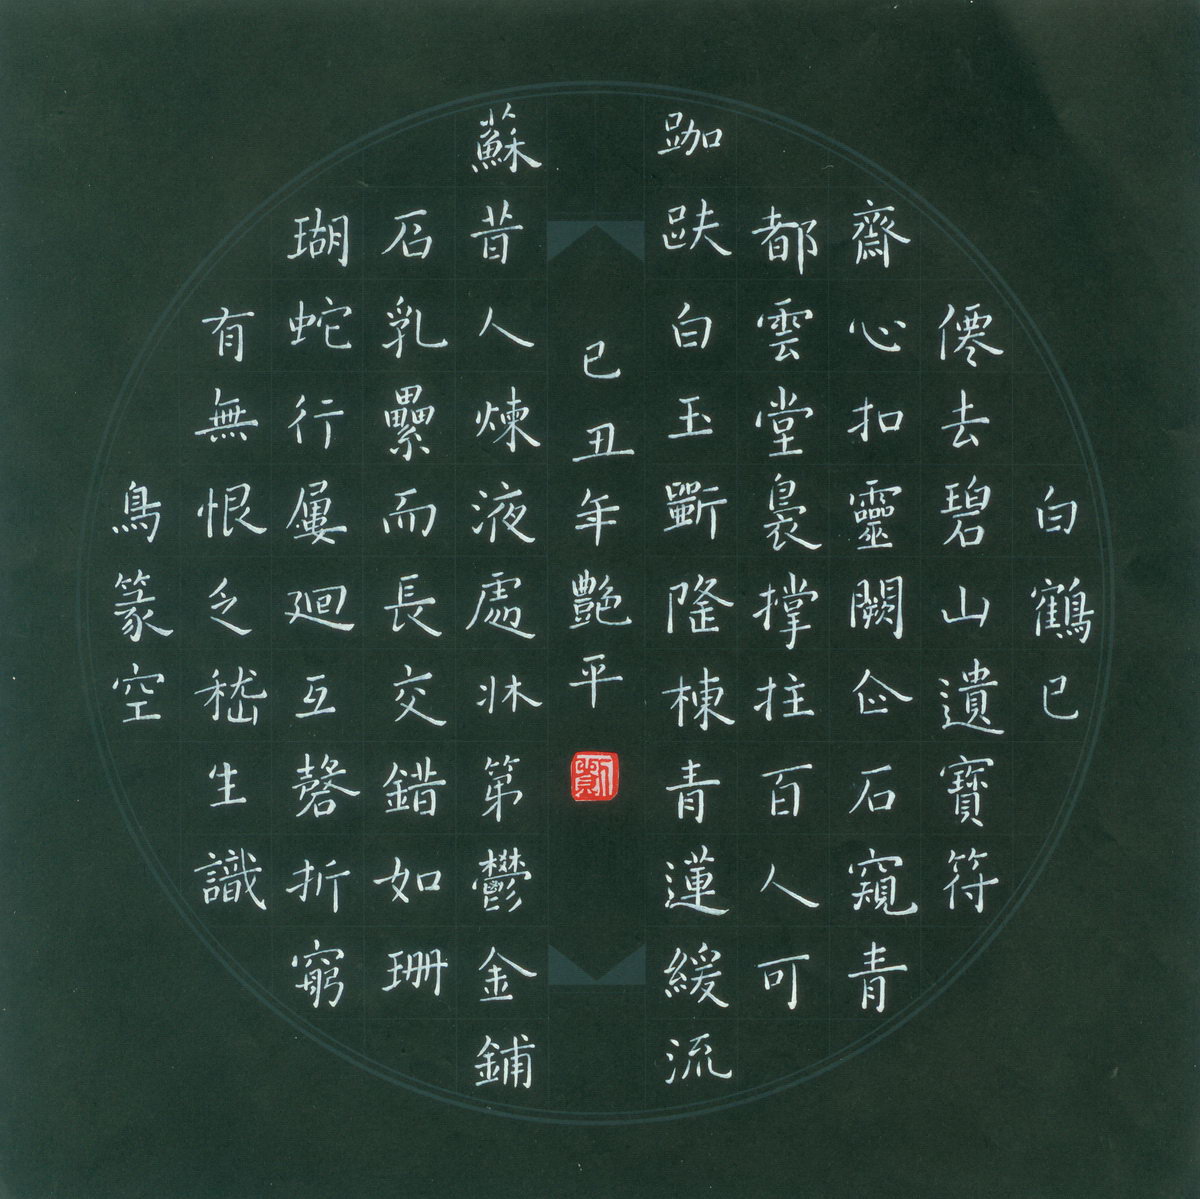 白鶴已
僊去碧山遺寶符
齋心扣靈闕企石窺青
都雲堂裊撑柱百人可
跏趺白玉斲隆棟青蓮緩流
蘇昔人煉液處牀第鬱金鋪
石乳纍而長交錯如珊
瑚蛇行屢迴互磬折窮
有無恨乏嵇生識
鳥篆空
己丑年艷平